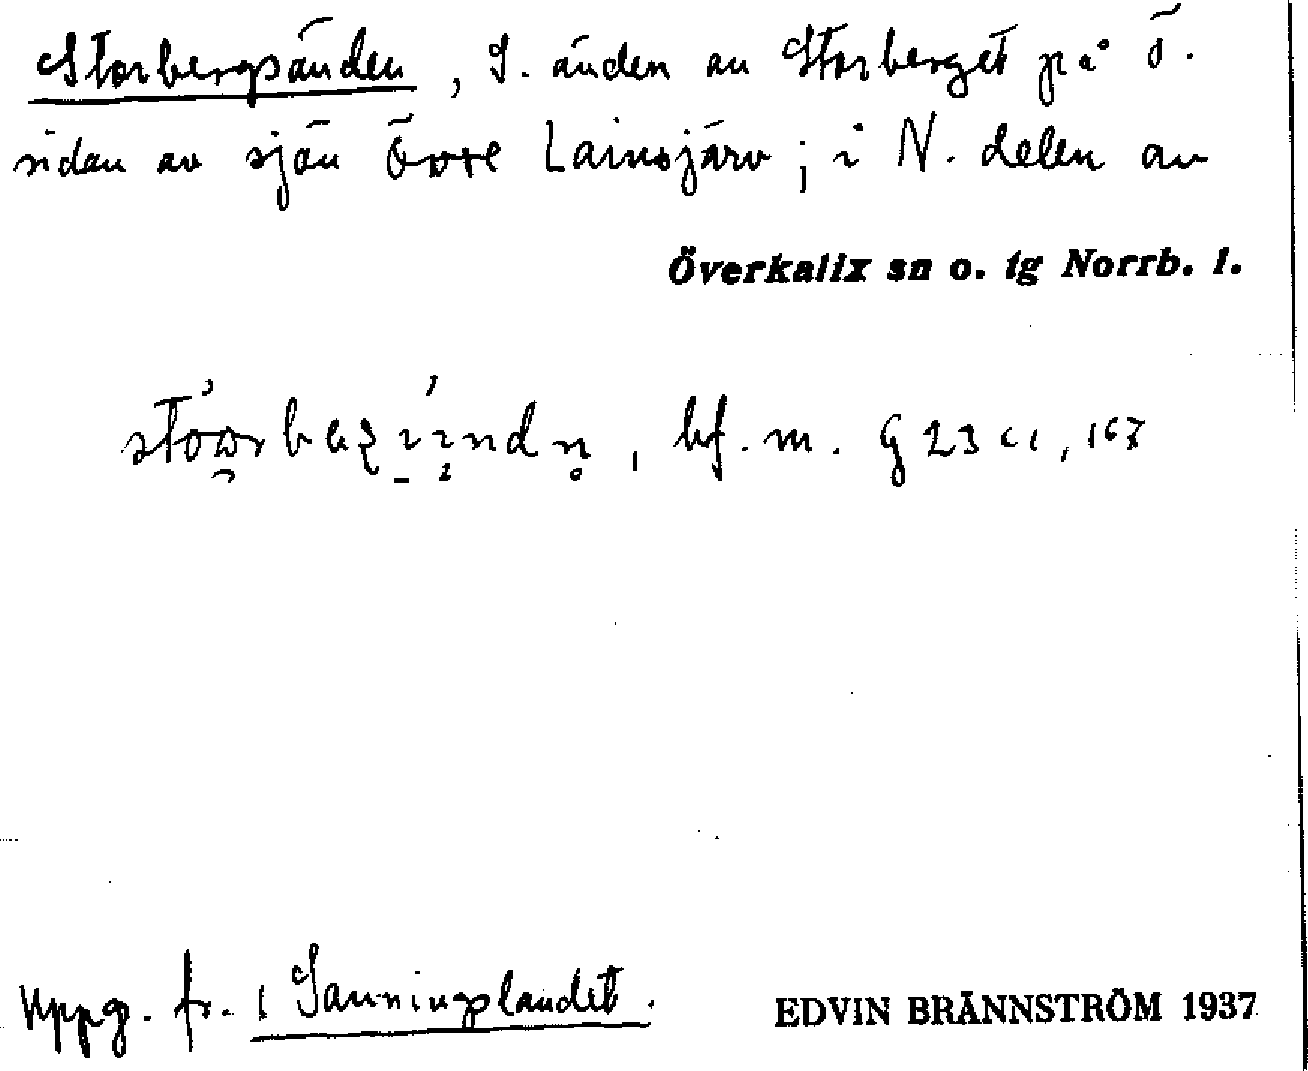 Storbergsänden, S. änden av Storberget på ö.
sidan av sjön Övre Lainsjärv; i N. delen av
Överkalix sn o. tg Norrb. l.
bf. m. G 23 c1, 167
Uppg. fr. Sanningslandet.
EDVIN BRÄNNSTRÖM 1937